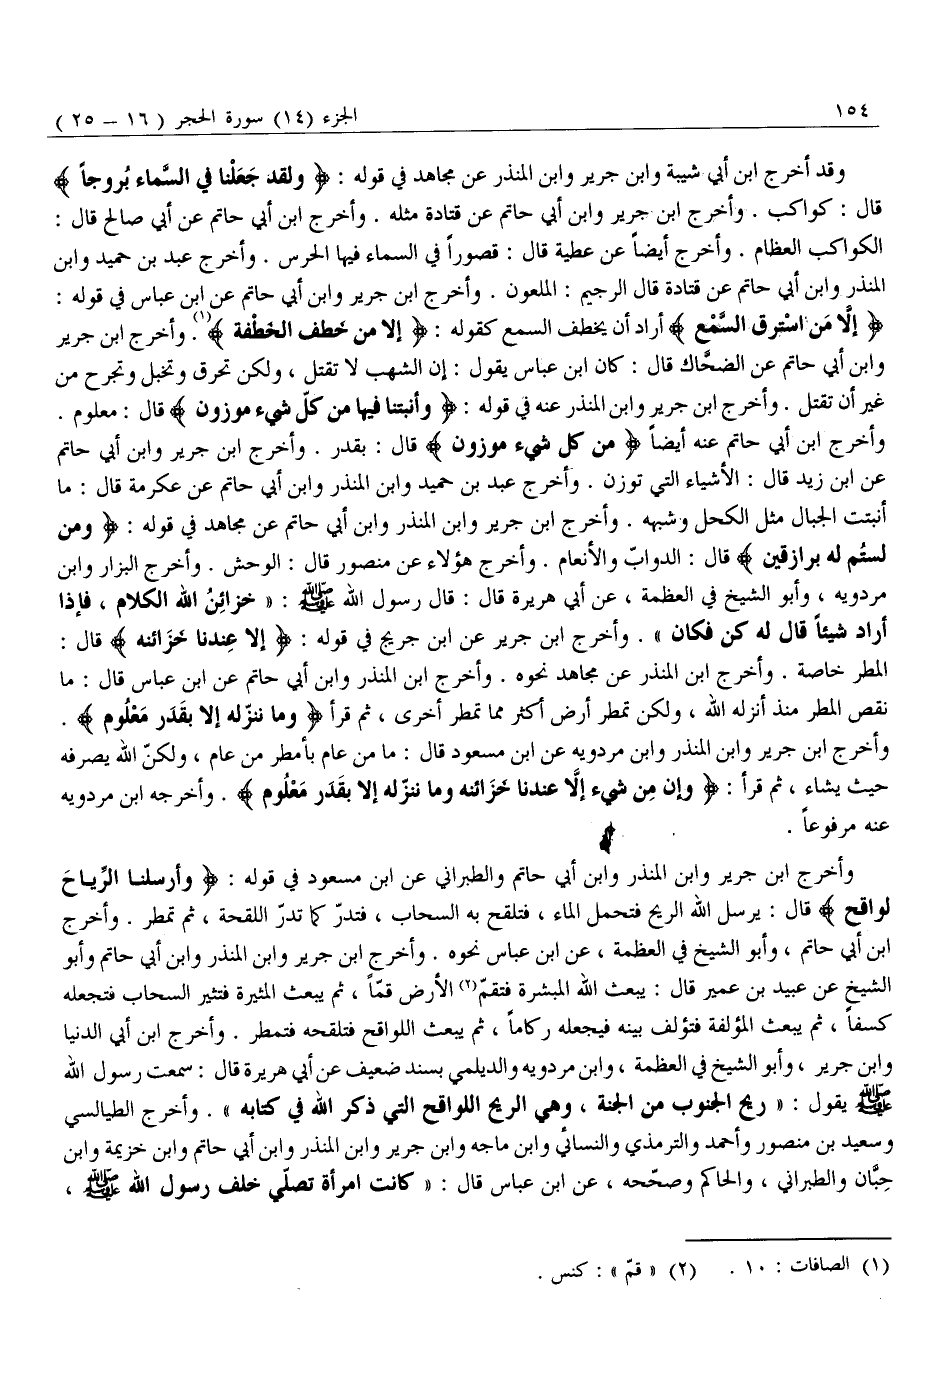 ١٥٤
الجزء (١٤) سورة الحجر ( ١٦ – ٢٥ )
وقد أخرج ابن أبي شيبة وابن جرير وابن المنذر عن مجاهد في قوله : ﴿ ولقد جَعَلْنا في السَّماء بُروجاً ﴾
قال : كواكب . وأخرج ابن جرير وابن أبي حاتم عن قتادة مثله . وأخرج ابن أبي حاتم عن أبي صالح قال :
الكواكب العظام . وأخرج أيضاً عن عطية قال : قصوراً في السماء فيها الحرس . وأخرج عبد بن حميد وابن
المنذر وابن أبي حاتم عن قتادة قال الرجيم : الملعون . وأخرج ابن جرير وابن أبي حاتم عن ابن عباس في قوله :
﴿ إلَّا مَن اسْترق السَّمْع ﴾ أراد أن يخطف السمع كقوله : ﴿ إلا من خَطف الخَطْفة ﴾(١). وأخرج ابن جرير
وابن أبي حاتم عن الضحَّاك قال : كان ابن عباس يقول : إن الشهب لا تقتل ، ولكن تحرق وتخبل وتجرح من
غير أن تقتل . وأخرج ابن جرير وابن المنذر عنه في قوله : ﴿ وأنبتنا فيها من كلّ شيء موزون ﴾ قال : معلوم .
وأخرج ابن أبي حاتم عنه أيضاً ﴿ من كل شيء موزون ﴾ قال : بقدر . وأخرج ابن جرير وابن أبي حاتم
عن ابن زيد قال : الأشياء التي توزن . وأخرج عبد بن حميد وابن المنذر وابن أبي حاتم عن عكرمة قال : ما
أنبتت الجبال مثل الكحل وشبهه . وأخرج ابن جرير وابن المنذر وابن أبي حاتم عن مجاهد في قوله : ﴿ ومن
لستُم له برازقين ﴾ قال : الدوابّ والأنعام . وأخرج هؤلاء عن منصور قال : الوحش . وأخرج البزار وابن
مردويه ، وأبو الشيخ في العظمة ، عن أبي هريرة قال : قال رسول الله ﷺ : « خزائنُ الله الكلام ، فإذا
أراد شيئاً قال له كن فكان » . وأخرج ابن جرير عن ابن جريج في قوله : ﴿ إلا عِندنا خَزائنه ﴾ قال :
المطر خاصة . وأخرج ابن المنذر عن مجاهد نحوه . وأخرج ابن المنذر وابن أبي حاتم عن ابن عباس قال : ما
نقص المطر منذ أنزله الله ، ولكن تمطر أرض أكثر مما تمطر أخرى ، ثم قرأ ﴿ وما ننزّله إلا بقَدَر مَعْلُوم ﴾ .
وأخرج ابن جرير وابن المنذر وابن مردويه عن ابن مسعود قال : ما من عام بأمطر من عام ، ولكنّ الله يصرفه
حيث يشاء ، ثم قرأ : ﴿ وإن مِن شيء إلَّا عندنا خَزائنه وما ننزّله إلا بقَدَر مَعْلُوم ﴾ . وأخرجه ابن مردويه
عنه مرفوعاً .
وأخرج ابن جرير وابن المنذر وابن أبي حاتم والطبراني عن ابن مسعود في قوله : ﴿ وأرسلنا الرِّياحَ
لواقح ﴾ قال : يرسل الله الريح فتحمل الماء ، فتلقح به السحاب ، فتدرّ كما تدرّ اللقحة ، ثم تمطر . وأخرج
ابن أبي حاتم ، وأبو الشيخ في العظمة ، عن ابن عباس نحوه . وأخرج ابن جرير وابن المنذر وابن أبي حاتم وأبو
الشيخ عن عبيد بن عمير قال : يبعث الله المبشرة فتقمّ(٢) الأرض قمّاً ، ثم يبعث المثيرة فتثير السحاب فتجعله
كسفاً ، ثم يبعث المؤلفة فتؤلف بينه فيجعله ركاماً ، ثم يبعث اللواقح فتلقحه فتمطر . وأخرج ابن أبي الدنيا
وابن جرير ، وأبو الشيخ في العظمة ، وابن مردويه والديلمي بسند ضعيف عن أبي هريرة قال : سمعت رسول الله
ﷺ يقول : « ريح الجنوب من الجنة ، وهي الريح اللواقح التي ذكر الله في كتابه » . وأخرج الطيالسي
وسعيد بن منصور وأحمد والترمذي والنسائي وابن ماجه وابن جرير وابن المنذر وابن أبي حاتم وابن خزيمة وابن
حِبَّان والطبراني ، والحاكم وصحّحه ، عن ابن عباس قال : « كانت امرأة تصلّي خلف رسول الله ﷺ ،
(١) الصافات : ١٠ . (٢) « قمّ » : كنس .